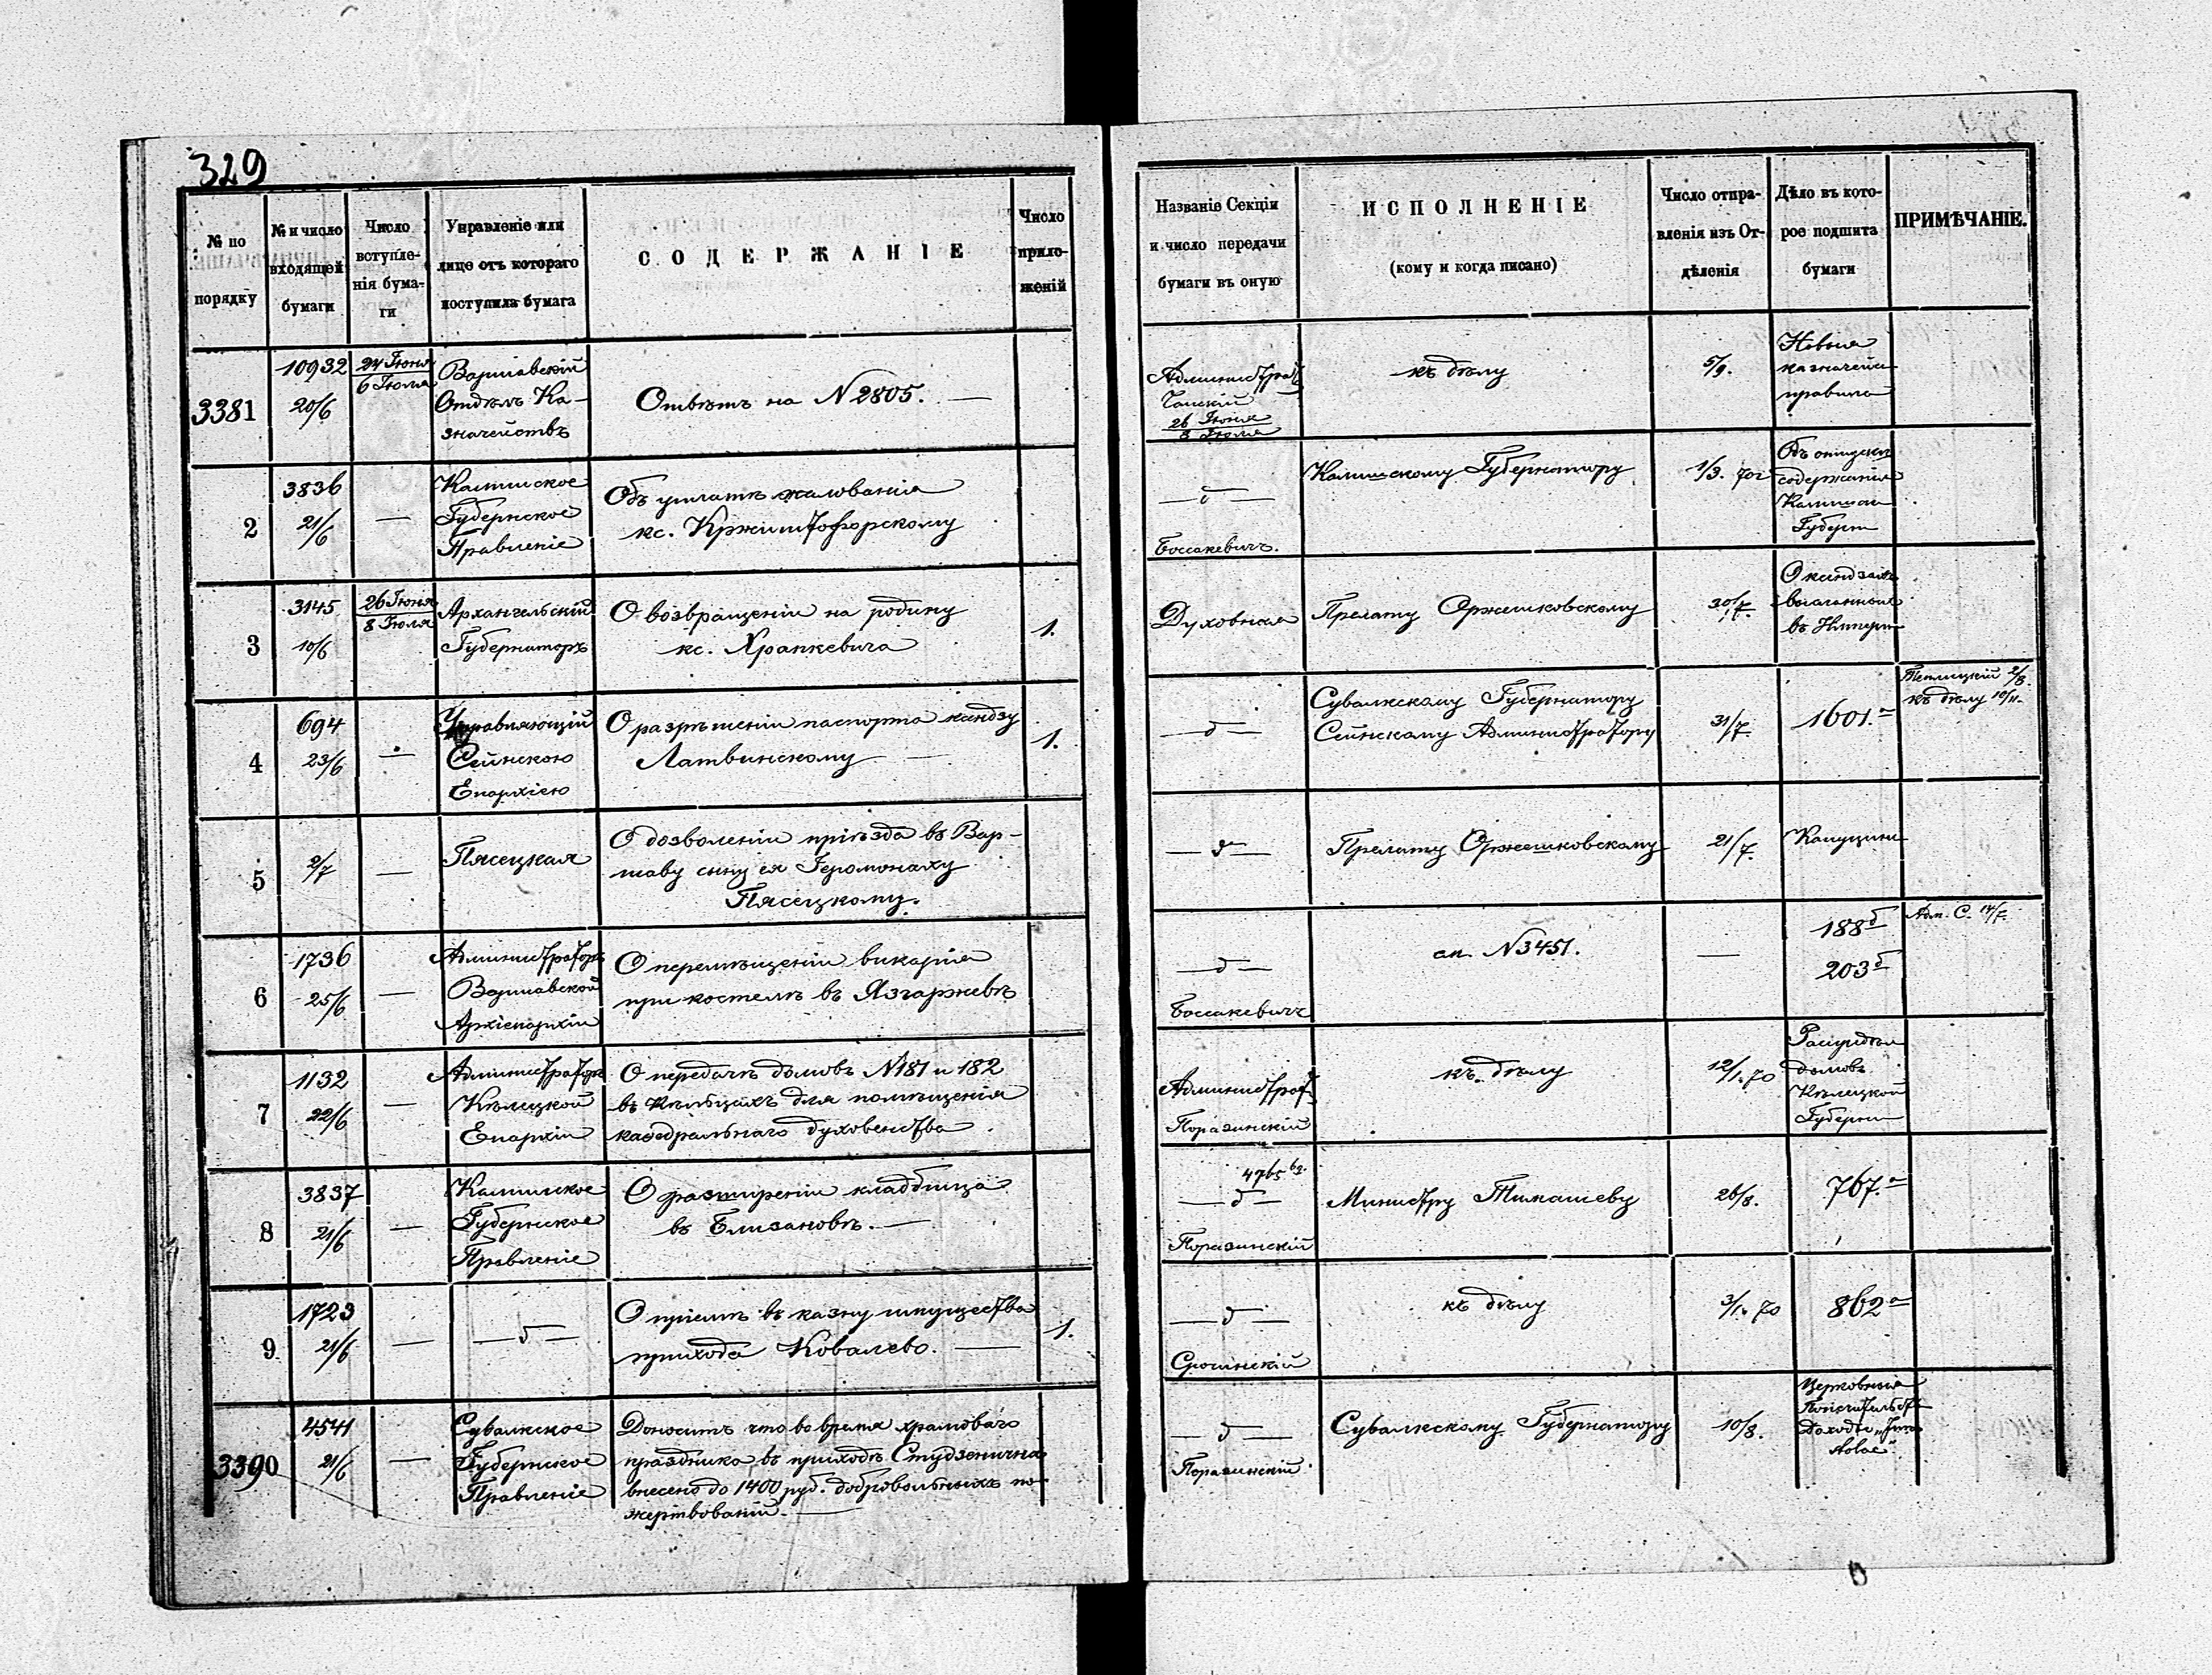 329
№ по порядку
№ и число входящей бумаги
Число вступле-нія бума-ги
Управленіе или лице отъ котораго поступила бумага
СОДЕРЖАНІЕ
Число прило-женій
Названіе Секціи и число передачи бумаги въ оную
ИСПОЛНЕНІЕ
(кому и когда писано)
Число отпра-вленія изъ От-дѣленія
Дѣло въ кото-рое подшита бумаги
ПРИМѢЧАНІЕ.
3381
10932
20/6
24 Іюня
6 Іюля
Варшавскій
Отдѣлъ Ка-
значействъ
Отвѣтъ на N 2805. —
26 Іюня
8 Іюля
къ дѣлу
5/9.
Новыя
правила
2
3836
21/6
—
Калишское
Губернское
Правленіе
Объ уплатѣ жалованія
кс. Кржиштофорскому
— д —
Боссакевичъ.
Калишскому Губернатору
1/3. 70
содержанія
Губерн
3
3145
10/6
26 Іюня
8 Іюля
Архангельскій
Губернаторъ
О возвращеніи на родину
кс. Храпкевича
1.
Духовная
Прелату Оржешковскому
30/7.
О ксендзахъ
въ Имперіи
4
694
23/6
—
Управляющій
Сейнскою
Епархіею
О разрѣшеніи паспорта ксендзу
Латвинскому —
1.
— д —
Сувалкскому Губернатору
Сейнскому Администратору
31/7.
1601.а
2/8.
къ дѣлу 10/11.
5
2/7
—
Пясецкая
О дозволеніи пріѣзда въ Вар-
шаву сыну ея Іеромонаху
Пясецкому.
— д —
Прелату Оржешковскому
21/7.
Капуцини
6
1736
25/6
—
Администраторъ
Варшавской
Архіепархіи
О перемѣщеніи викарія
при костелѣ въ Язгаржевѣ
— д —
Боссакевичъ
сп. N 3451.
—
188б
203б
Адм. С. 14/7.
7
1132
22/6
—
Администраторъ
Кѣлецкой
Епархіи
О передачѣ домовъ N 181 и 182
въ Кѣльцахъ для помѣщенія
каѳедральнаго духовенства
Администрат
Поразинскій
къ дѣлу
12/1. 70
домовъ
Кѣлецкой
Губерн
8
3837
21/6
—
Калишское
Губернское
Правленіе
О расширеніи кладбища
въ Близановѣ. —
4765
— д —
Поразинскій
Министру Тимашеву
26/8.
767.а
9
1723
21/6
—
— д —
О пріемѣ въ казну имущества
прихода Ковалево. —
1.
— д —
къ дѣлу
3/1. 70
862а
3390
4541
21/6
—
Сувалкское
Губернское
Правленіе
Доноситъ что во время храмоваго
праздника въ приходѣ Студзенична
внесено до 1400 руб. добровольныхъ по-
жертвованій. —
— д —
Поразинскій
Сувалкскому Губернатору
10/8.
Церковныя